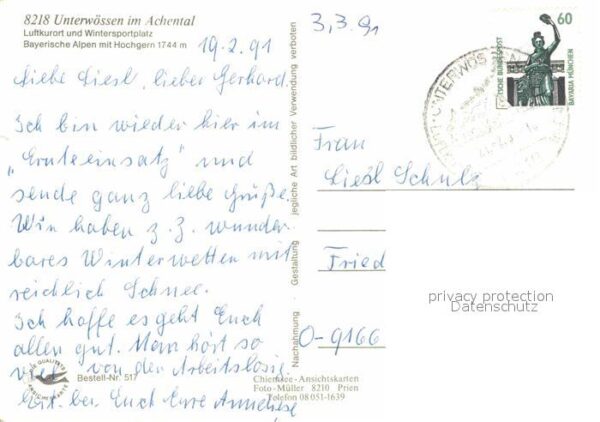 8218 Unterwössen im Achental
Luftkurort und Wintersportplatz
Bayerische Alpen mit Hochgern 1744 m
19.2.91
Liebe Liesl, lieber Gerhard.
Ich bin wieder hier im
„Ernteeinsatz" und
sende ganz liebe Grüße.
Wir haben z.Z. wunder-
bares Winterwetter mit
reichlich Schnee.
Ich hoffe es geht Euch
allen gut. Man hört so
viel von der Arbeitslosig-
keit bei Euch Eure Anneliese
QUALITÄTS
Bestell-Nr. 517
Chiemsee-Ansichtskarten
Foto-Müller 8210 Prien
Telefon 08051-1639
Nachahmung · Gestaltung · jegliche Art bildlicher Verwendung verboten
3,3,91
UNTERWÖS
60
DEUTSCHE BUNDESPOST
BAVARIA MÜNCHEN
Frau
Liesl Schulz
Fried
O-9166
privacy protection
Datenschutz